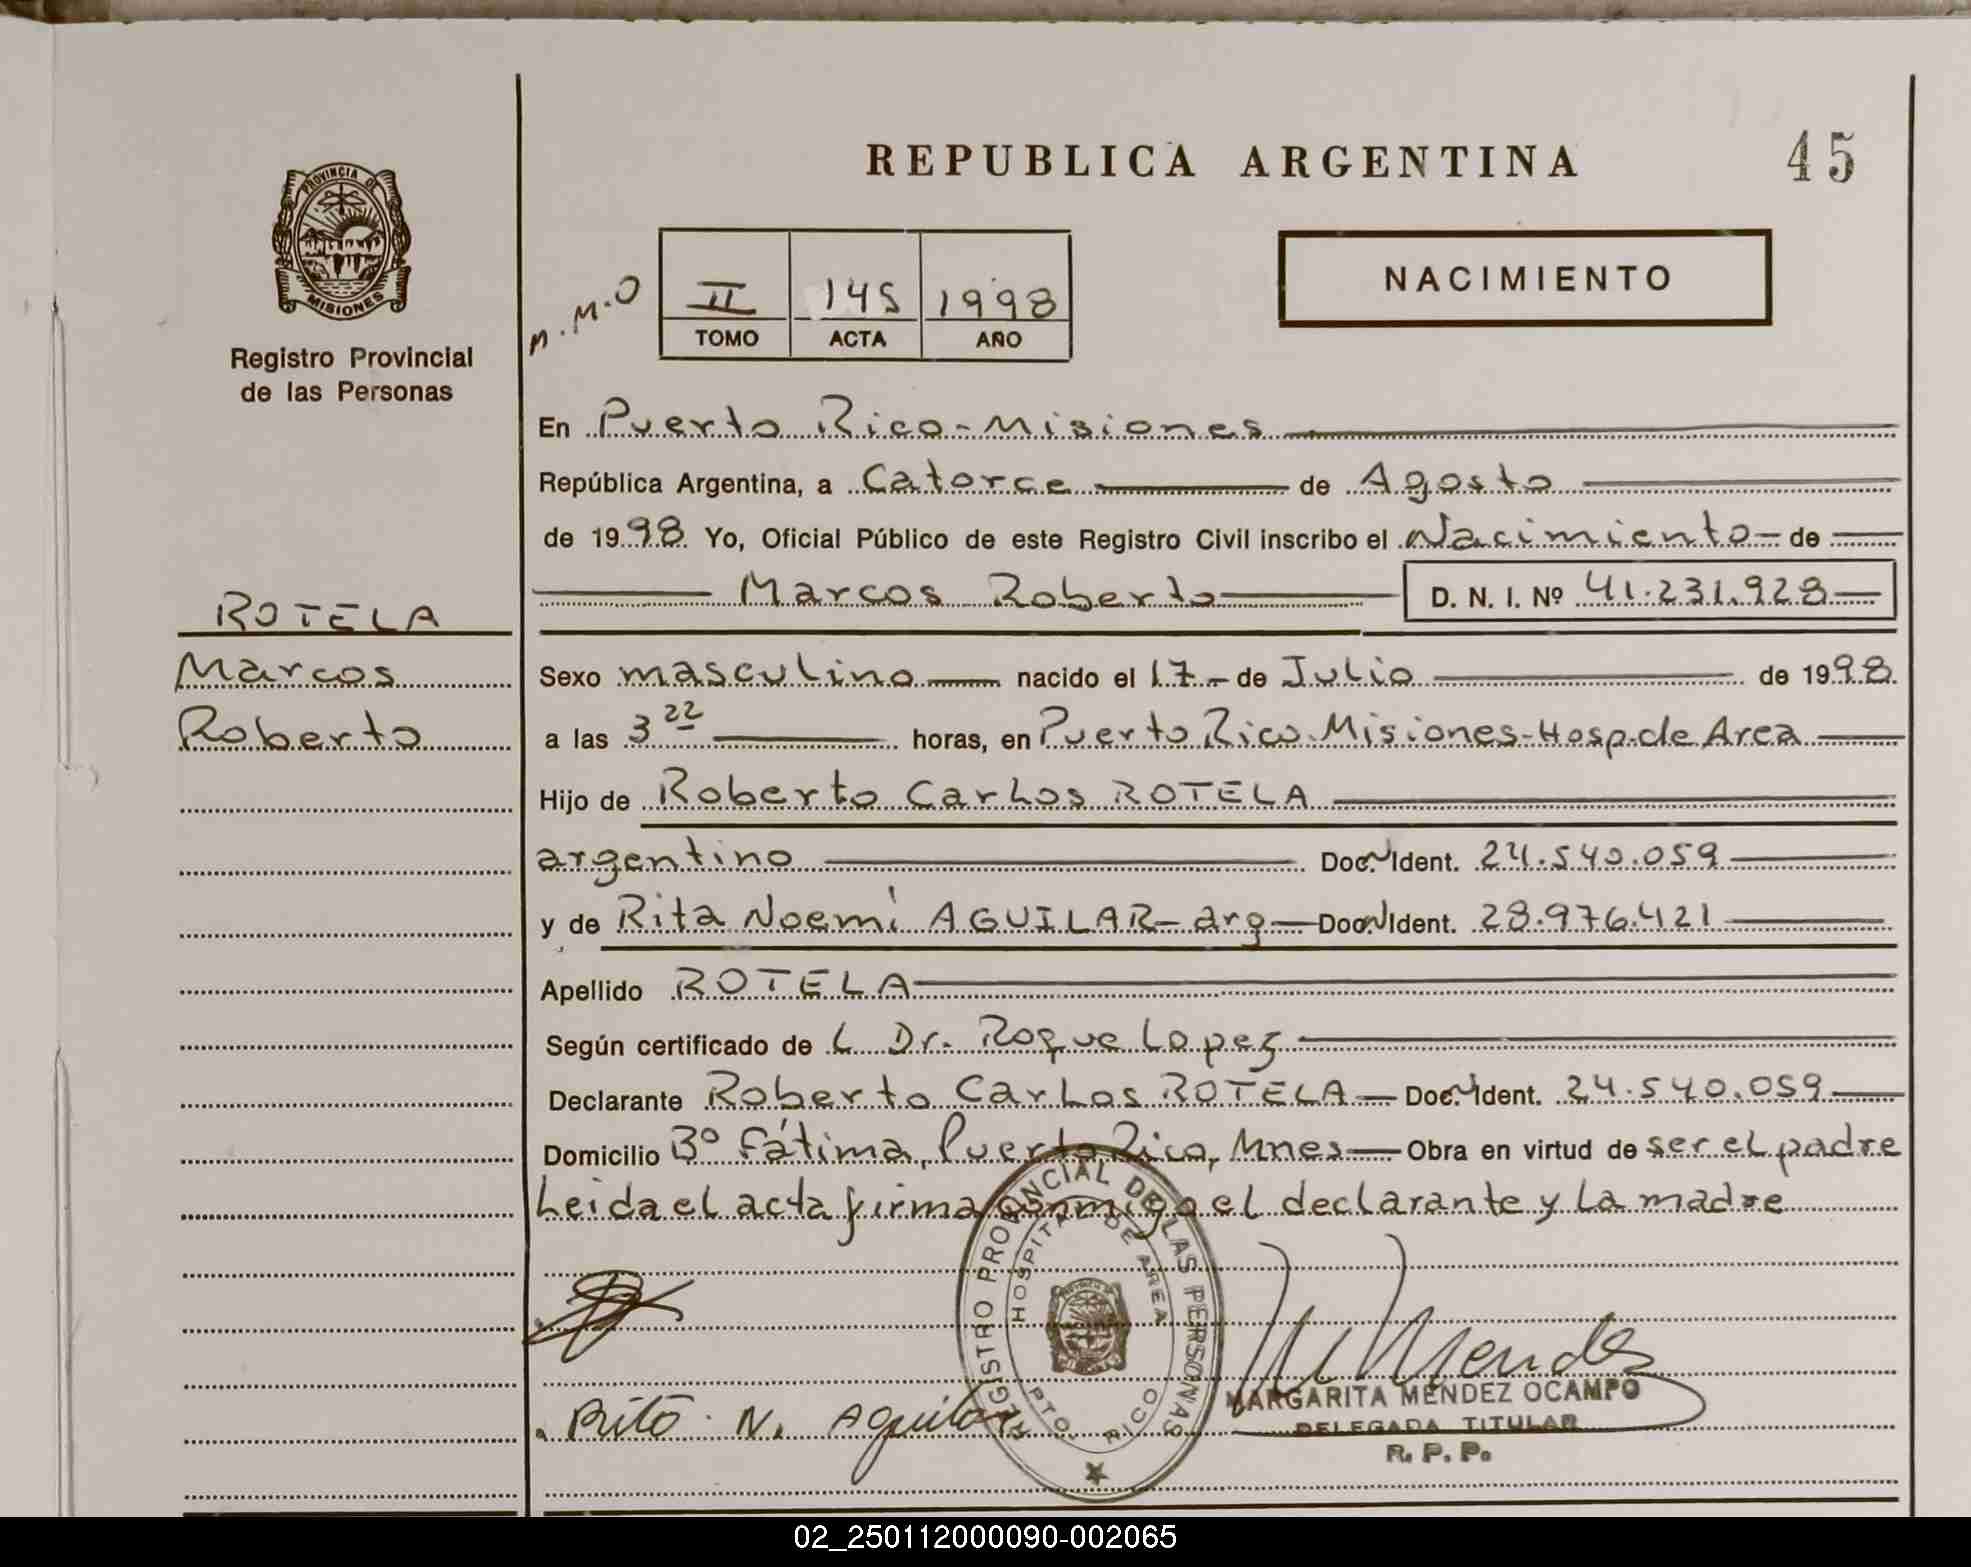 REPUBLICA ARGENTINA
45
PROVINCIA DE
MISIONES
Registro Provincial
de las Personas
M.M.O
II 145 1998
TOMO ACTA AÑO
NACIMIENTO
En Puerto Rico - Misiones
República Argentina, a Catorce de Agosto
de 1998 Yo, Oficial Público de este Registro Civil inscribo el Nacimiento de
Marcos Roberto D. N. I. Nº 41.231.928
ROTELA
Marcos
Roberto
Sexo masculino nacido el 17 de Julio de 1998
a las 3 22 horas, en Puerto Rico. Misiones-Hosp.de Area
Hijo de Roberto Carlos ROTELA
argentino Doc. N Ident. 24.540.059
y de Rita Noemí AGUILAR - arg Doc. N Ident. 28.976.421
Apellido ROTELA
Según certificado de L Dr. Roque Lopez
Declarante Roberto Carlos ROTELA Doc. N Ident. 24.540.059
Domicilio Bº Fátima, Puerto Rico, Mnes Obra en virtud de ser el padre
Leida el acta firma conmigo el declarante y la madre
REGISTRO PROVINCIAL DE LAS PERSONAS
HOSPITAL DE AREA
PTO. RICO
M Mendez
MARGARITA MENDEZ OCAMPO
DELEGADA TITULAR
R. P. P.
Rita N. Aguilar
02_250112000090-002065